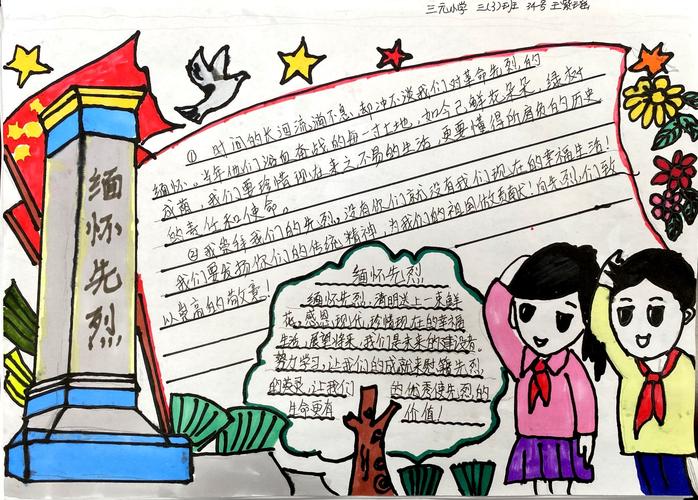 三元小学 三(3)班 34号 王紫瑶
缅怀先烈
① 时间的长河流淌不息,却冲不淡我们对革命先烈的
缅怀。当年他们浴血奋战的每一寸土地,如今已鲜花朵朵,绿树
成荫,我们要珍惜现在来之不易的生活,更要懂得所肩负的历史
的责任和使命。
②我崇拜我们的先烈,没有你们就没有我们现在的幸福生活!
我们要发扬你们的传统精神,为我们的祖国做贡献!向先烈们致
以崇高的敬意!
缅怀先烈
缅怀先烈,清明送上一束鲜
花。感恩现代,珍惜现在的幸福
生活。展望将来,我们是未来的建设者
努力学习,让我们的成就来慰籍先烈
的英灵,让我们 的优秀使先烈的
生命更有 价值!